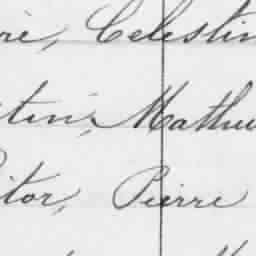 re, Celestin
tin, Mathieu
itor, Pierre